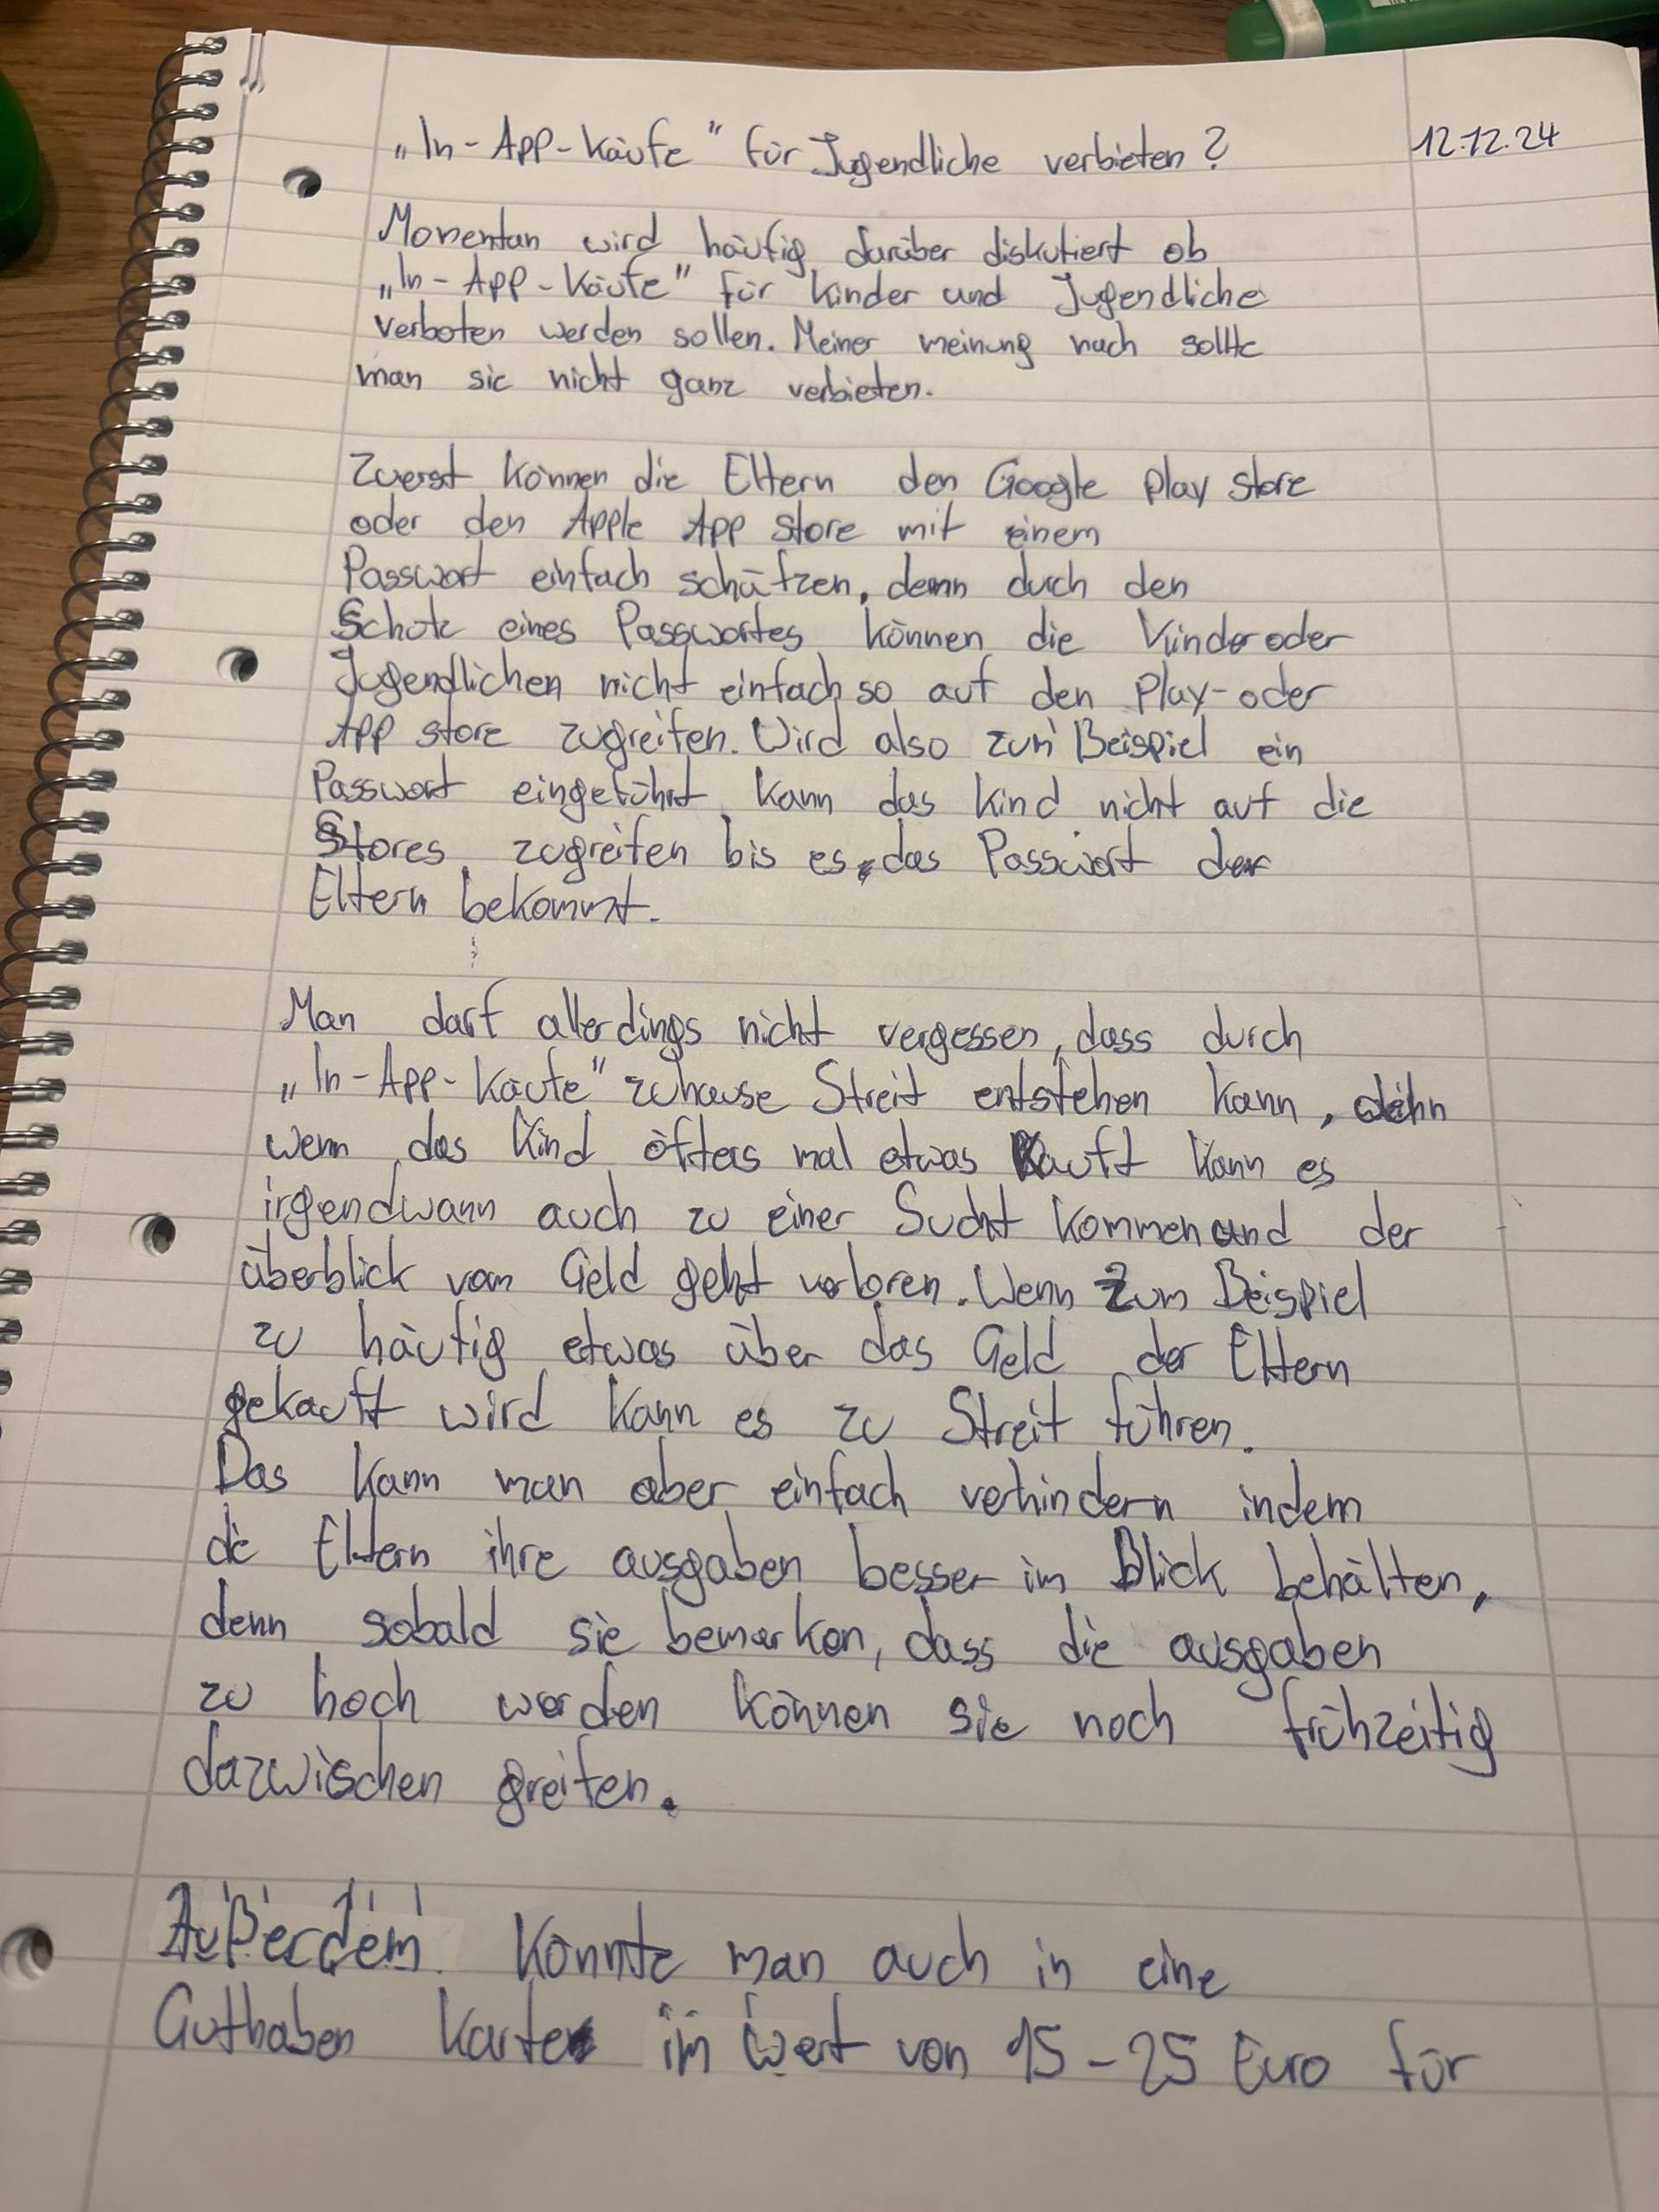 „In-App-Käufe" für Jugendliche verbieten?
12.12.24
Momentan wird häufig darüber diskutiert ob
„In-App-Käufe" für Kinder und Jugendliche
verboten werden sollen. Meiner meinung nach sollte
man sie nicht ganz verbieten.
Zuerst können die Eltern den Google Play Store
oder den Apple App Store mit einem
Passwort einfach schützen, denn durch den
Schutz eines Passwortes können die Kinder oder
Jugendlichen nicht einfach so auf den Play-oder
App store zugreifen. Wird also zum Beispiel ein
Passwort eingeführt kann das Kind nicht auf die
Stores zugreifen bis es das Passwort der
Eltern bekommt.
Man darf allerdings nicht vergessen, dass durch
„In-App-Käufe" zuhause Streit entstehen kann, denn
wenn das Kind öfters mal etwas kauft kann es
irgendwann auch zu einer Sucht kommen und der
überblick vom Geld geht verloren. Wenn zum Beispiel
zu häufig etwas über das Geld der Eltern
gekauft wird kann es zu Streit führen.
Das kann man aber einfach verhindern indem
die Eltern ihre ausgaben besser im Blick behalten,
denn sobald sie bemerken, dass die ausgaben
zu hoch werden können sie noch frühzeitig
dazwischen greifen.
Außerdem könnte man auch in eine
Guthaben Karte im Wert von 15-25 Euro für